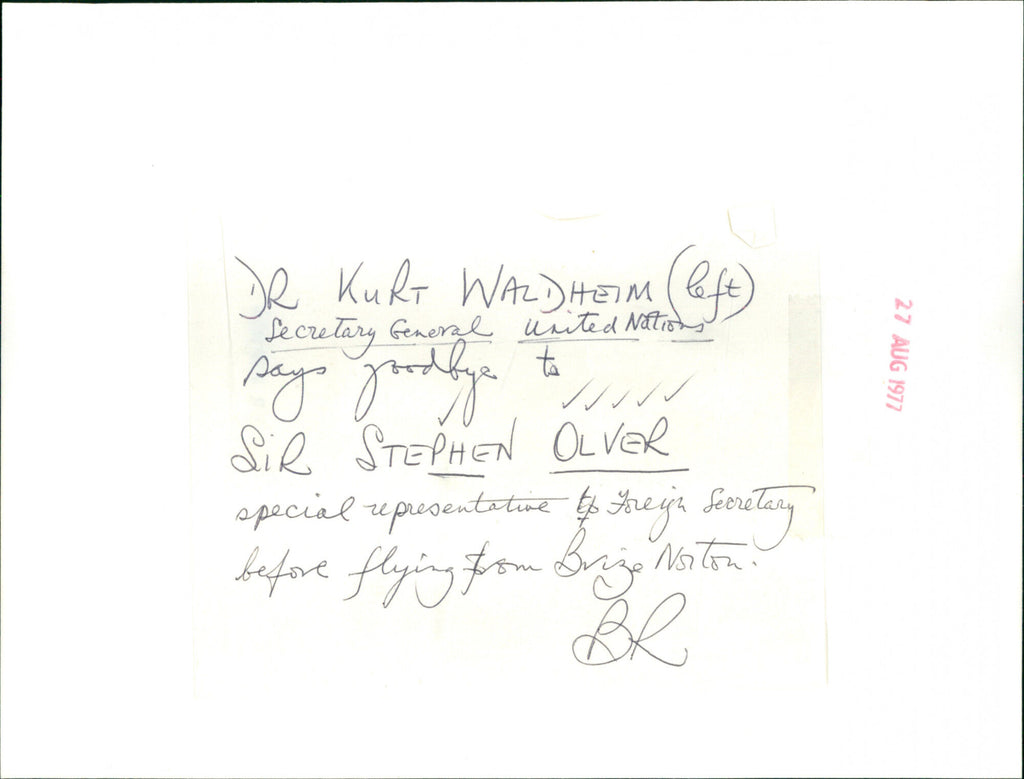 DR KURT WALDHEIM (left)
Secretary General United Nations
says goodbye to
SIR STEPHEN OLVER
special representative to Foreign Secretary
before flying from Brize Norton.
BR
27 AUG 1977